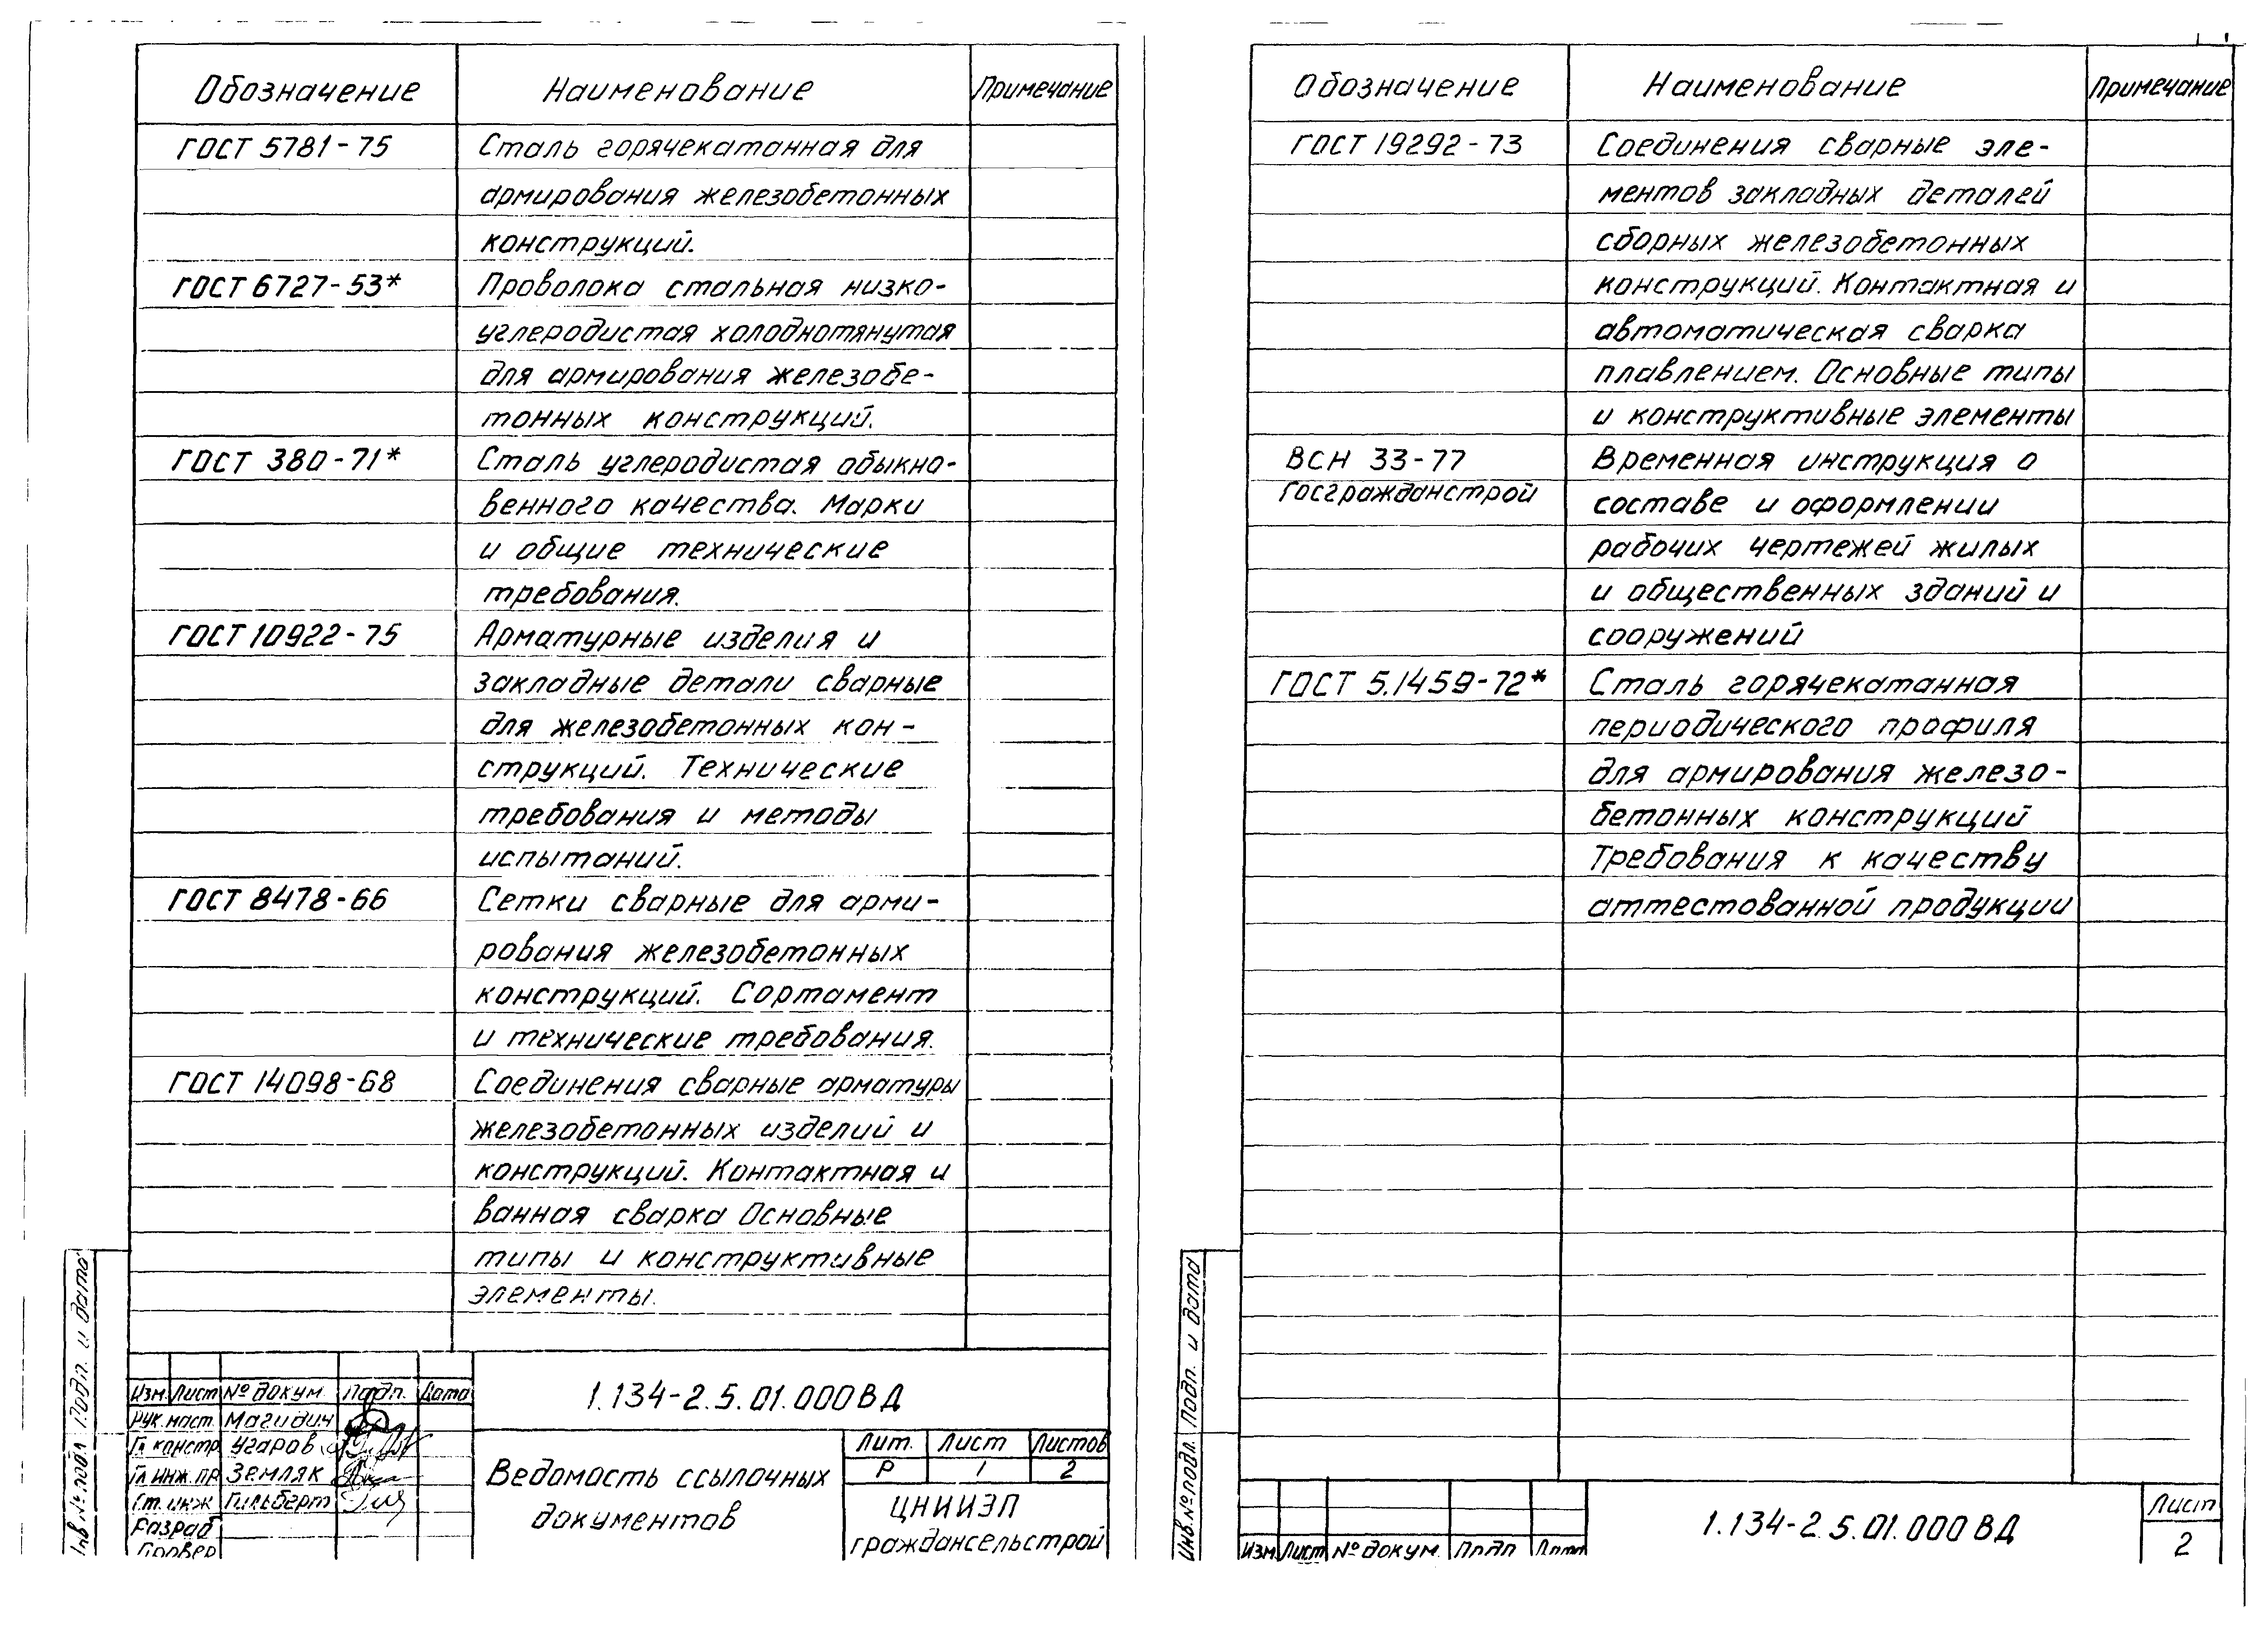 Обозначение Наименование Примечание
ГОСТ 5781-75 Сталь горячекатанная для
армирования железобетонных
конструкций.
ГОСТ 6727-53* Проволока стальная низко-
углеродистая холоднотянутая
для армирования железобе-
тонных конструкций.
ГОСТ 380-71* Сталь углеродистая обыкно-
венного качества. Марки
и общие технические
требования.
ГОСТ 10922-75 Арматурные изделия и
закладные детали сварные
для железобетонных кон-
струкций. Технические
требования и методы
испытаний.
ГОСТ 8478-66 Сетки сварные для арми-
рования железобетонных
конструкций. Сортамент
и технические требования.
ГОСТ 14098-68 Соединения сварные арматуры
железобетонных изделий и
конструкций. Контактная и
ванная сварка Основные
типы и конструктивные
элементы.
Изм. Лист № докум. Подп. Дата
Рук. маст. Магидич
Гл констр. Угаров
Гл инж. пр Земляк
Ст. инж Гильберт
Разраб
Провер
1.134-2.5.01.000ВД
Ведомость ссылочных
документов
Лит. Лист Листов
Р 1 2
ЦНИИЭП
граждансельстрой
Инв. № подл. Подп. и дата
Обозначение Наименование Примечание
ГОСТ 19292-73 Соединения сварные эле-
ментов закладных деталей
сборных железобетонных
конструкций. Контактная и
автоматическая сварка
плавлением. Основные типы
и конструктивные элементы
ВСН 33-77 Временная инструкция о
Госгражданстрой составе и оформлении
рабочих чертежей жилых
и общественных зданий и
сооружений
ГОСТ 5.1459-72* Сталь горячекатанная
периодического профиля
для армирования железо-
бетонных конструкций
Требования к качеству
аттестованной продукции
Инв. № подл. Подп. и дата
Изм. Лист № докум. Подп Дата
1.134-2.5.01.000ВД
Лист
2